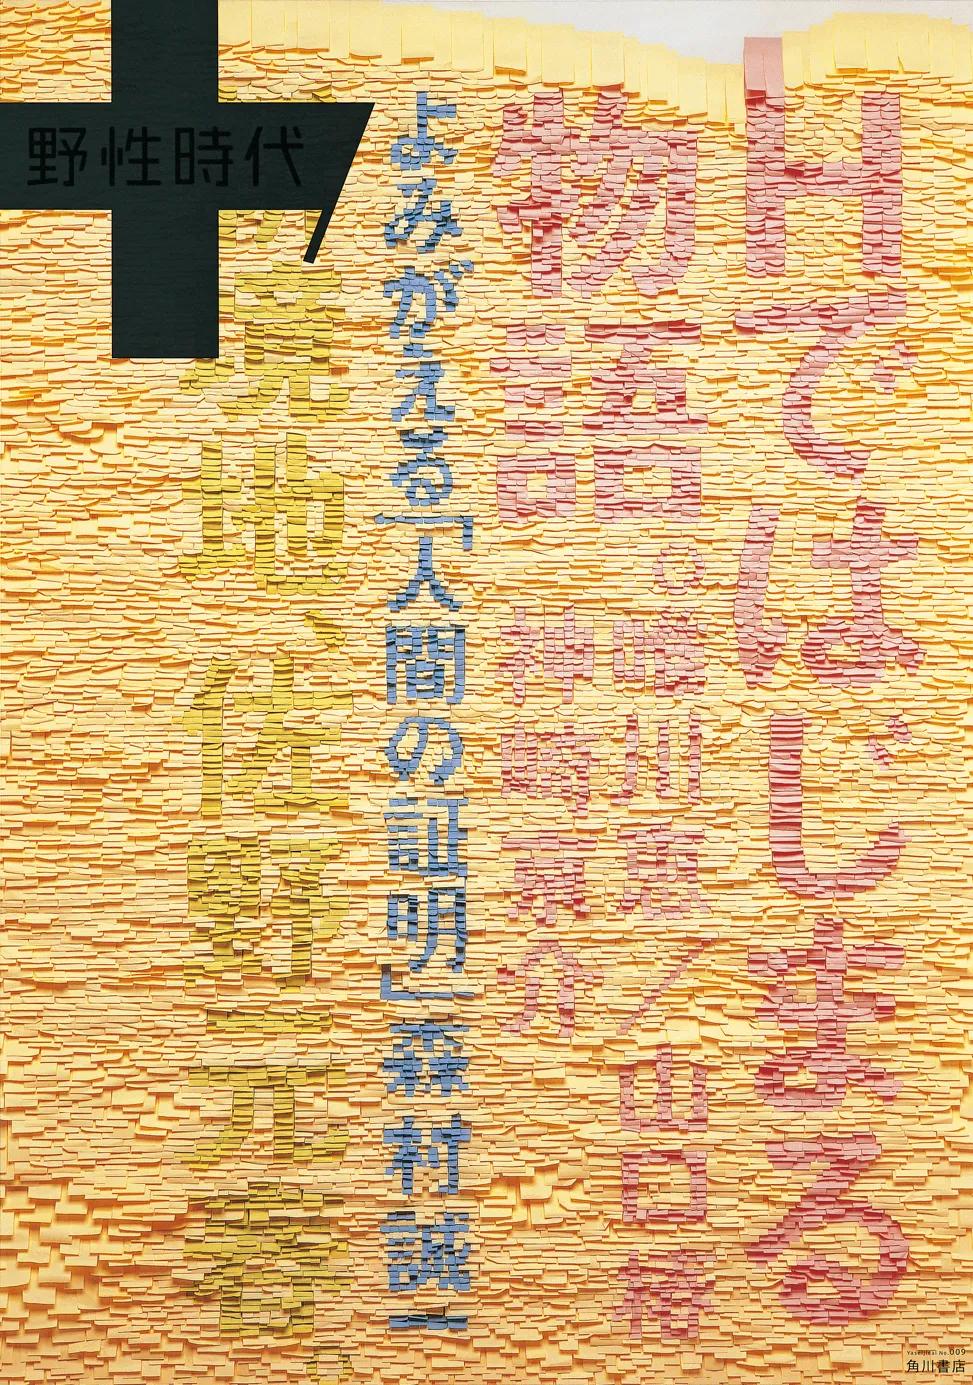 Hではじまる
物語。
唯川恵／山口椿
神崎京介
よみがえる「人間の証明」森村誠一
荒地、佐野元春、
野性時代
Yaseijidai No.009
角川書店